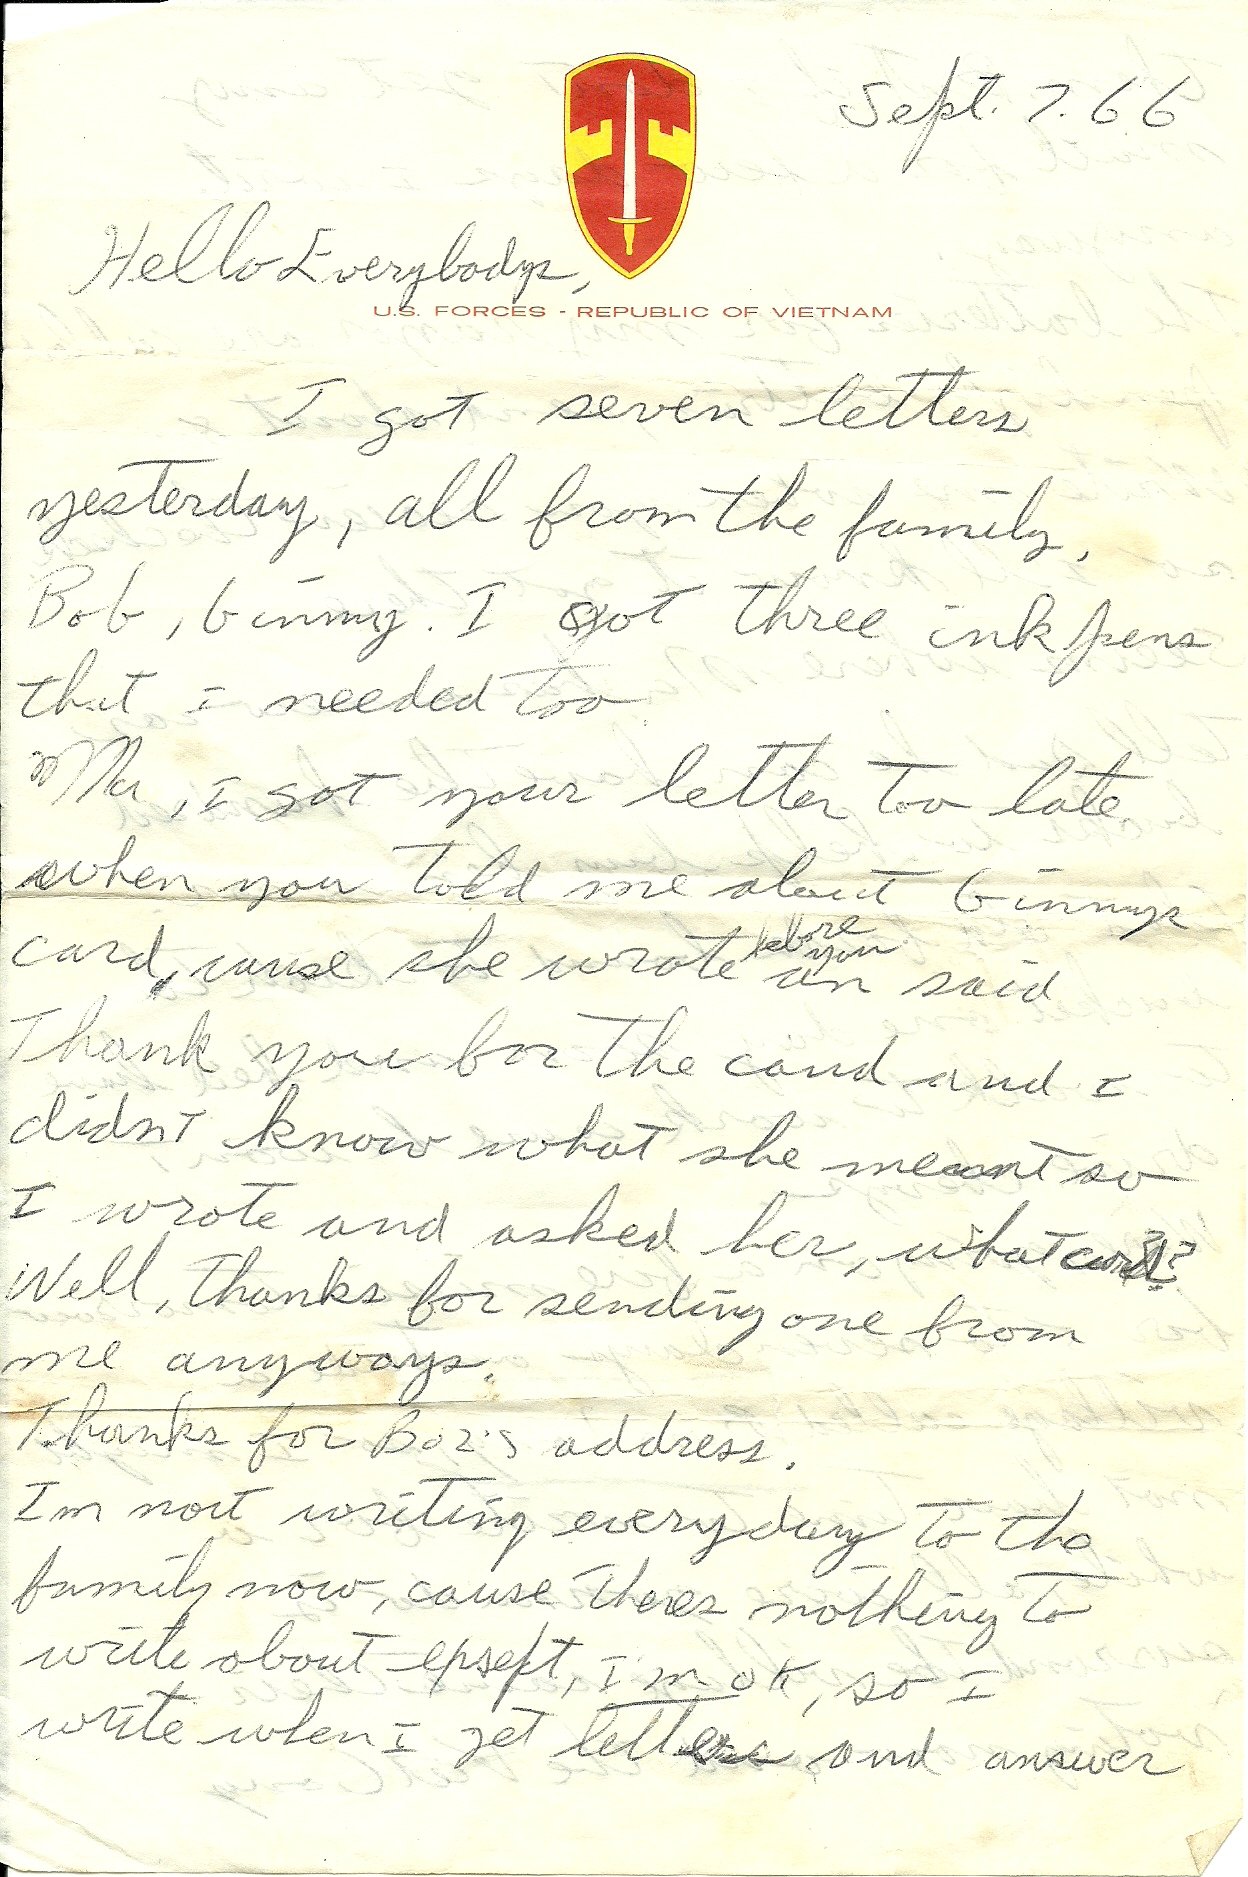 Sept. 7. 66
Hello Everybodys,
U.S. FORCES - REPUBLIC OF VIETNAM
I got seven letters
yesterday, all from the family,
Bob, Ginny. I got three ink pens
that I needed too.
Ma, I got your letter too late
when you told me about Ginnys
card, cause she wrote before you an said
Thank you for the card and I
didn't know what she meant so
I wrote and asked her, what card??
Well, thanks for sending one from
me anyways.
Thanks for Boz's address.
Im not writing everyday to the
family now, cause theres nothing to
write about epsept, I'm OK, so I
write when I get letters and answer